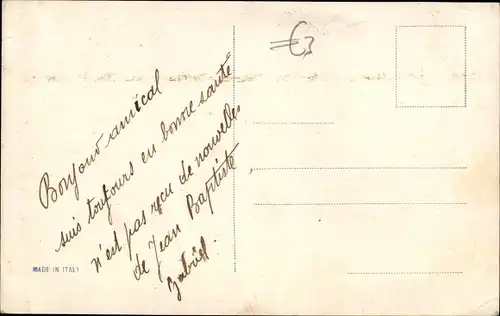 Bonjour amical
suis toujours en bonne santé
n'est pas reçu de nouvelles
de Jean Baptiste
Gabriel
€3
MADE IN ITALY